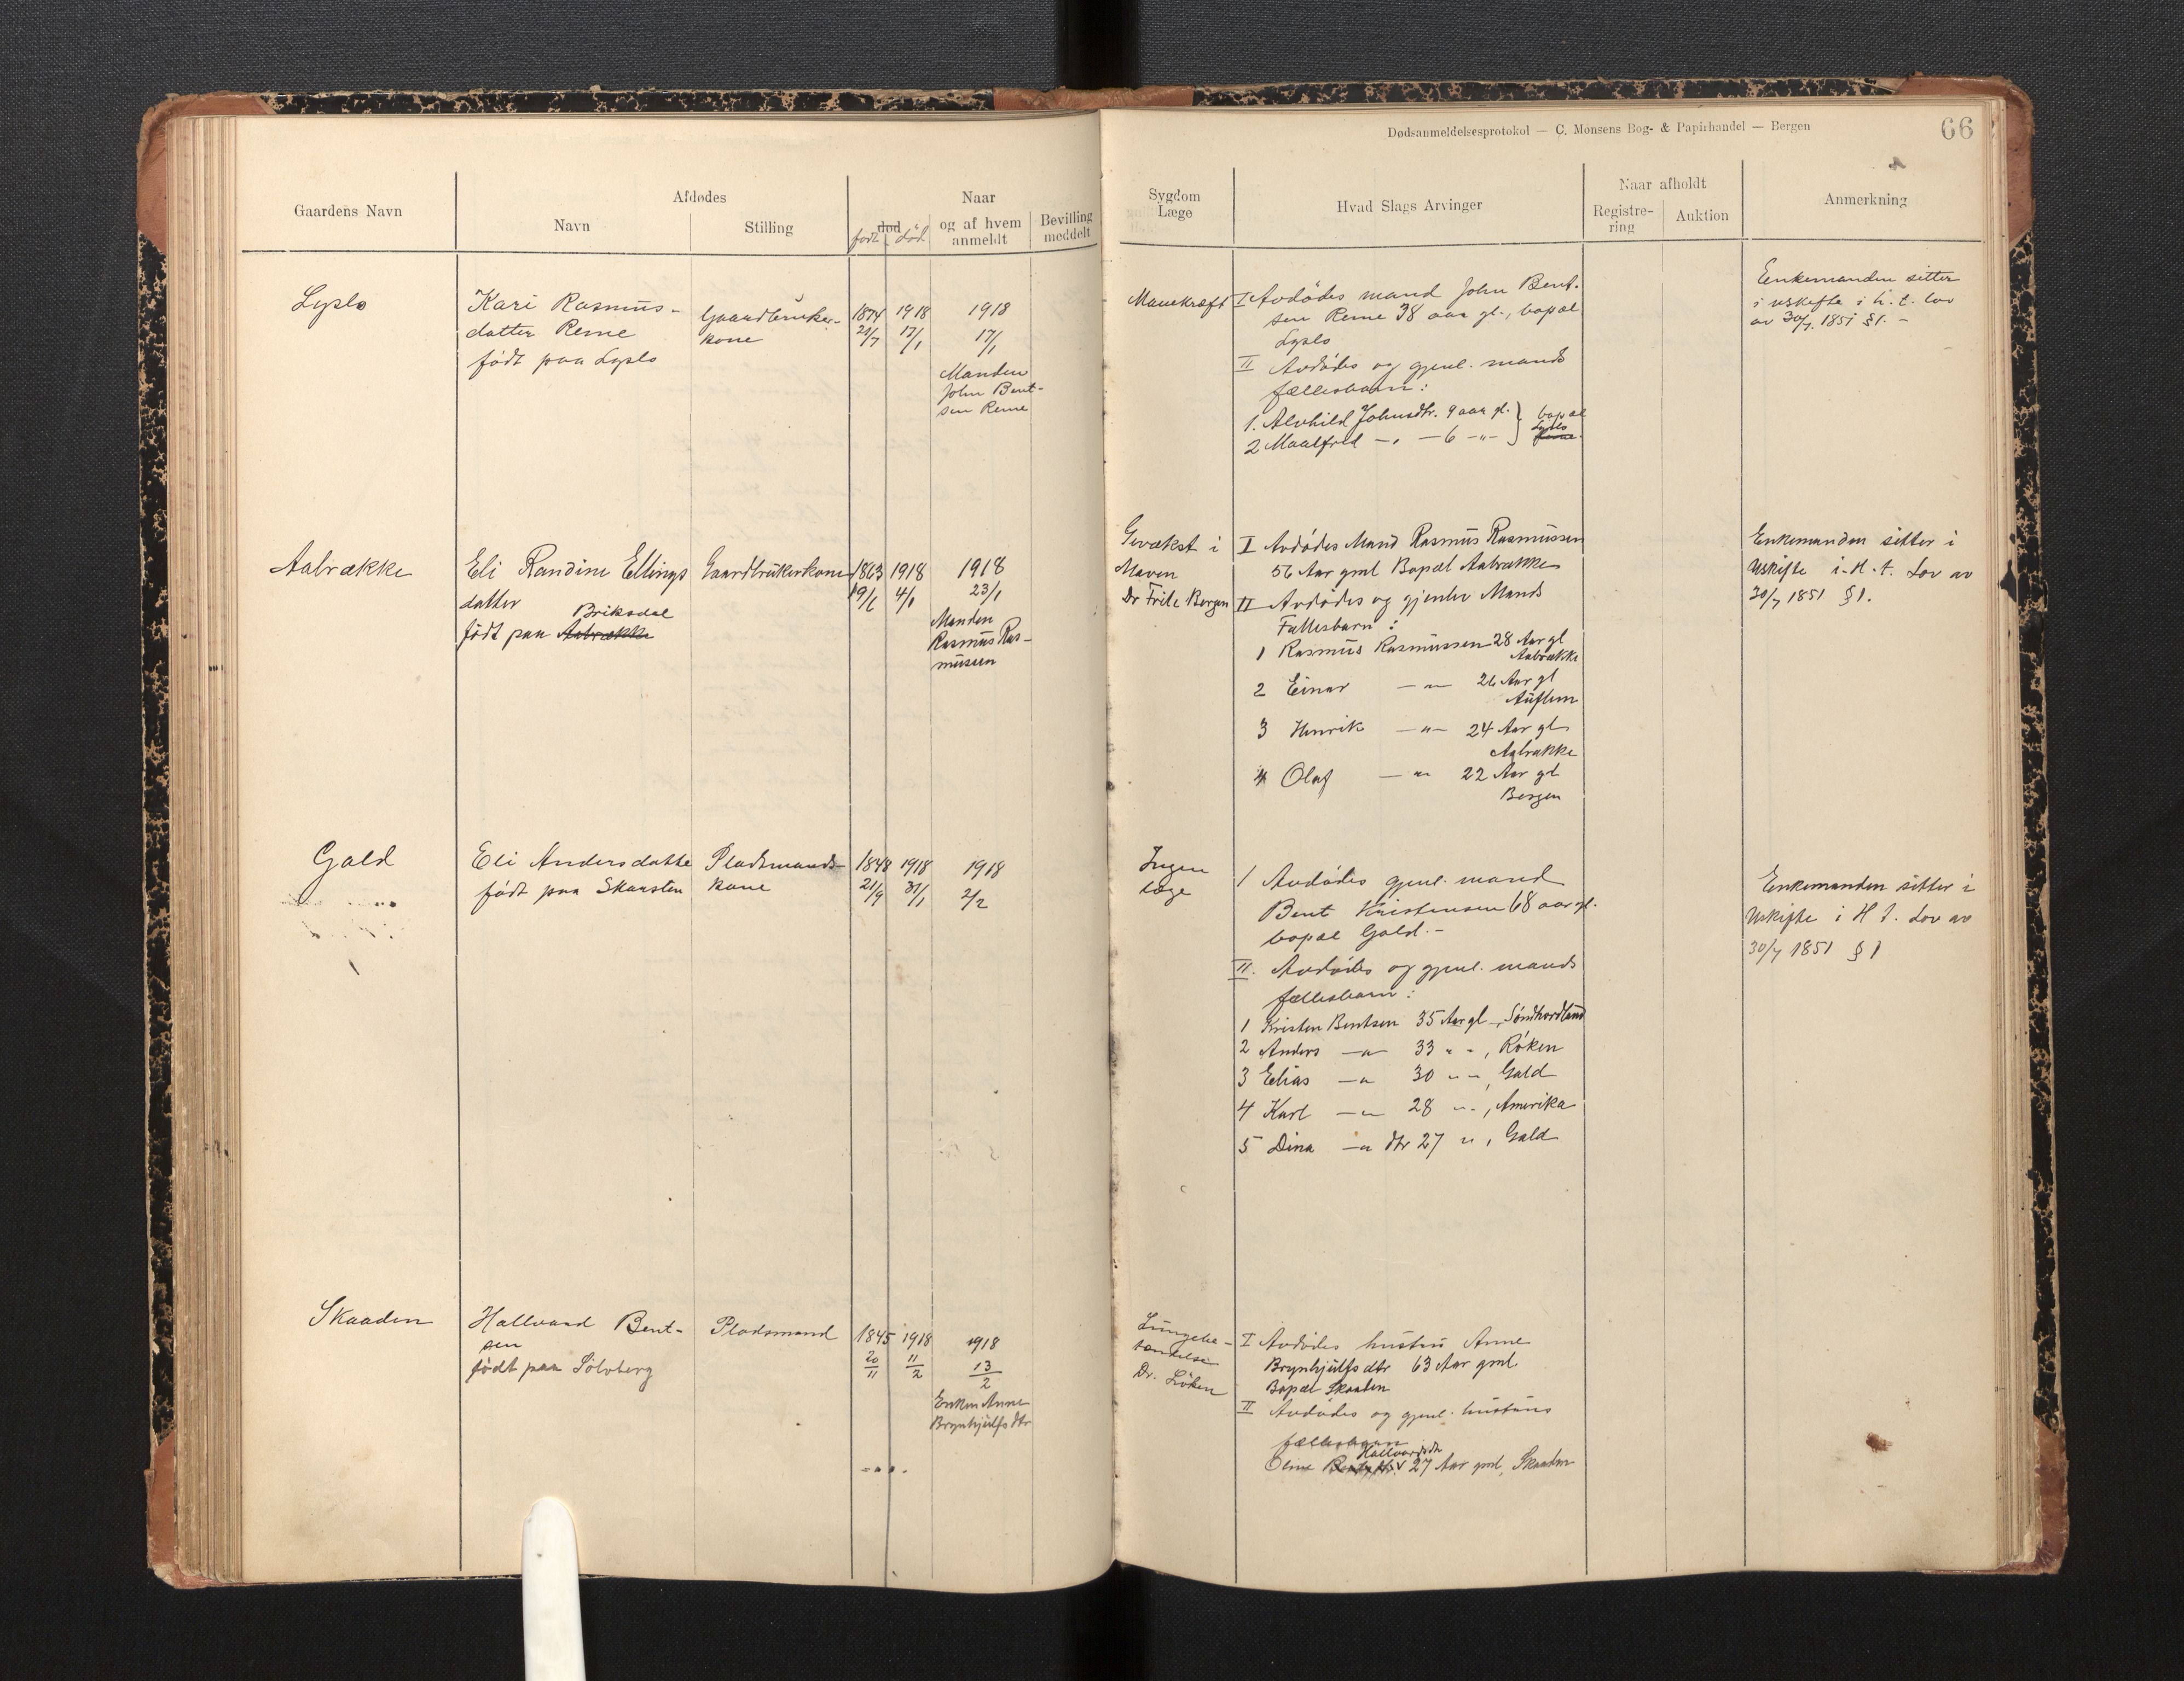 Dødsanmeldelsesprotokol — C. Monsens Bog- & Papirhandel — Bergen
66
Gaardens Navn
Afdødes
Navn
Stilling
død
født død
Naar
og af hvem
anmeldt
Bevilling
meddelt
Sygdom
Læge
Hvad Slags Arvinger
Naar afholdt
Registre-
ring
Auktion
Anmerkning
Lyslo
Kari Rasmus-
datter Reme
født paa Lyslo
Gaardbruker-
kone
1874 1918
21/7 17/1
1918
17/1
Manden
John Bent-
sen Reme
Mavekræft
I Avdødes mand John Bent-
sen Reme 38 aar gl., bopæl
Lyslo
II Avdødes og gjenl. mands
fællesbarn:
1. Alvhild Johnsdtr. 9 aar gl. } bopæl
Lyslo
2 Maalfrid —„ — 6 —„—
Enkemanden sitter
i uskifte i h. t. lov
av 30/7 1851 §1. –
Aabrække
Eli Randine Ellings
datter
Briksdal
født paa Aabrække
Gaardbrukerkone
1863 1918
19/6 4/1
1918
23/1
Manden
Rasmus Ras-
mussen
Gevækst i
Maven
Dr Friele Bergen
I Avdødes Mand Rasmus Rasmussen
56 Aar gml Bopæl Aabrække
II Avdødes og gjenlev Mands
Fællesbarn:
1 Rasmus Rasmussen 28 Aar gl
Aabrække
2 Einar —„— 26 Aar gl
Auflem
3 Henrik —„— 24 Aar gl
Aabrække
4 Olaf —„— 22 Aar gl
Bergen
Enkemanden sitter i
Uskifte i H. t. Lov av
30/7 1851 §1.
Gald
Eli Andersdatte
født paa Skaasten
Pladsmands-
kone
1848 1918
21/9 31/1
1918
2/2
Ingen
læge
1 Avdødes gjenl. mand
Bent Kristensen 68 aar gl.
bopæl Gald.-
II. Avdødes og gjenl. mands
fællesbarn:
1 Kristen Bentsen 35 Aar gl, Søndhordland
2 Anders —„— 33 „ „, Røken
3 Elias —„— 30 „ „, Gald
4 Karl —„— 28 „ „, Amerika
5 Dina —„ dtr 27 „, Gald
Enkemanden sitter i
Uskifte i H t. Lov av
30/7 1851 § 1
Skaaden
Hallvard Bent-
sen
født paa Sølvberg
Pladsmand
1845 1918
20/11 11/2
1918
13/2
Enken Anne
Brynhjulfsdtr
Lungebe-
tændelse
Dr. Løken
I Avdødes hustru Anne
Brynhjulfsdtr 63 Aar gml
Bopæl Skaaden
II Avdødes og gjenl. hustrus
fællesbarn
Hallvardsdtr
Oline 27 Aar gml, Skaaden